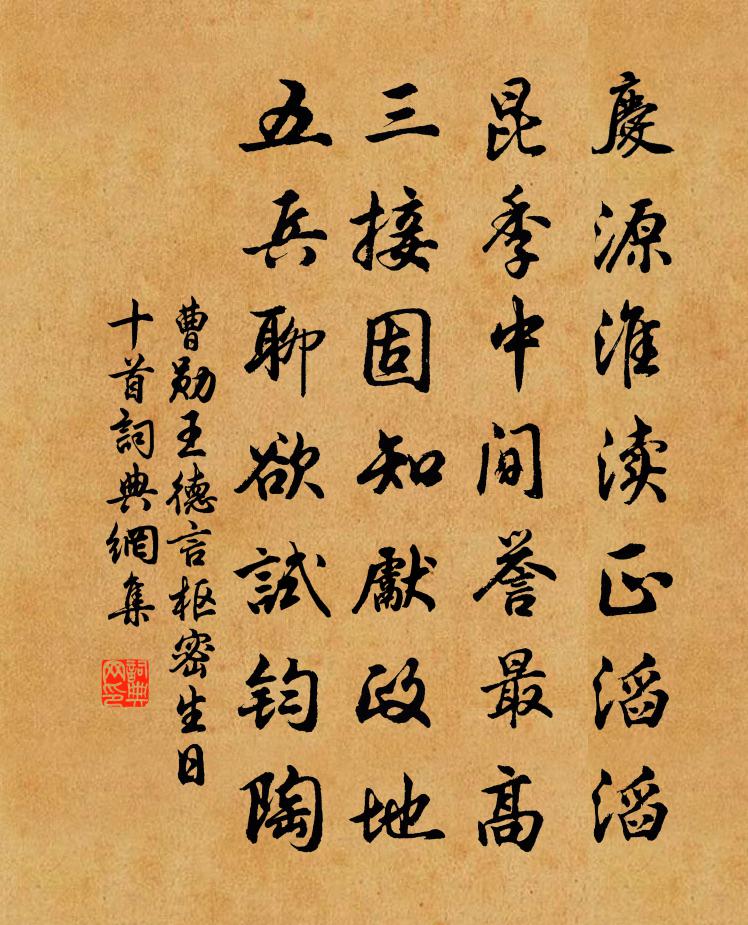 慶源淮渎正滔滔
昆季中间誉最高
三接固知獻政地
五兵聊欲試钧陶
曹勋王德言枢密生日
十首詞典網集
詞典網印